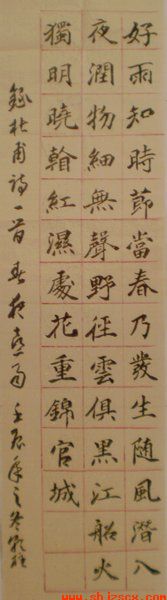 好雨知時節當春乃發生隨風潛入
夜潤物細無聲野徑雲俱黑江船火
獨明曉翰紅濕處花重錦官城
錄杜甫詩一首春夜喜雨壬辰年之冬